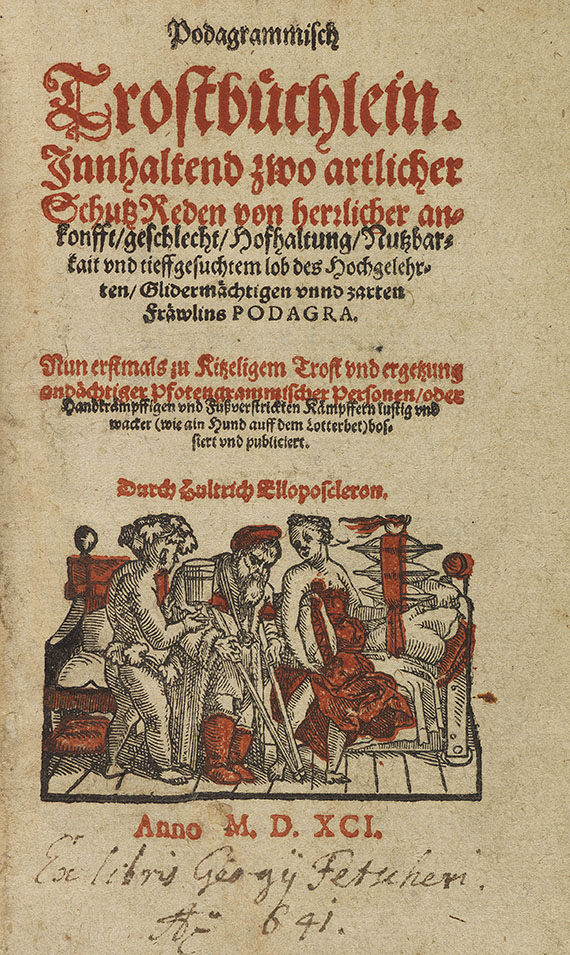 Podagrammisch
Trostbüchlein.
Innhaltend zwo artlicher
SchutzReden von herrlicher an-
konfft/geschlecht/Hofhaltung/Nutzbar-
kait vnd tieffgesuchtem lob des Hochgelehr-
ten/Glidermächtigen vnnd zarten
Fräwlins PODAGRA.
Nun erstmals zu Kitzeligem Trost vnd ergetzung
andächtiger Pfotengrammischer Personen/oder
Handkrämpffigen vnd Fußverstrickten Kämpffern lustig vnd
wacker (wie ain Hund auff dem Lotterbet) bos-
siert vnd publiciert.
Durch Hultrich Elloposcleron.
Anno M. D. XCI.
Ex libris Georgÿ Fetscheri.
Aº 641.